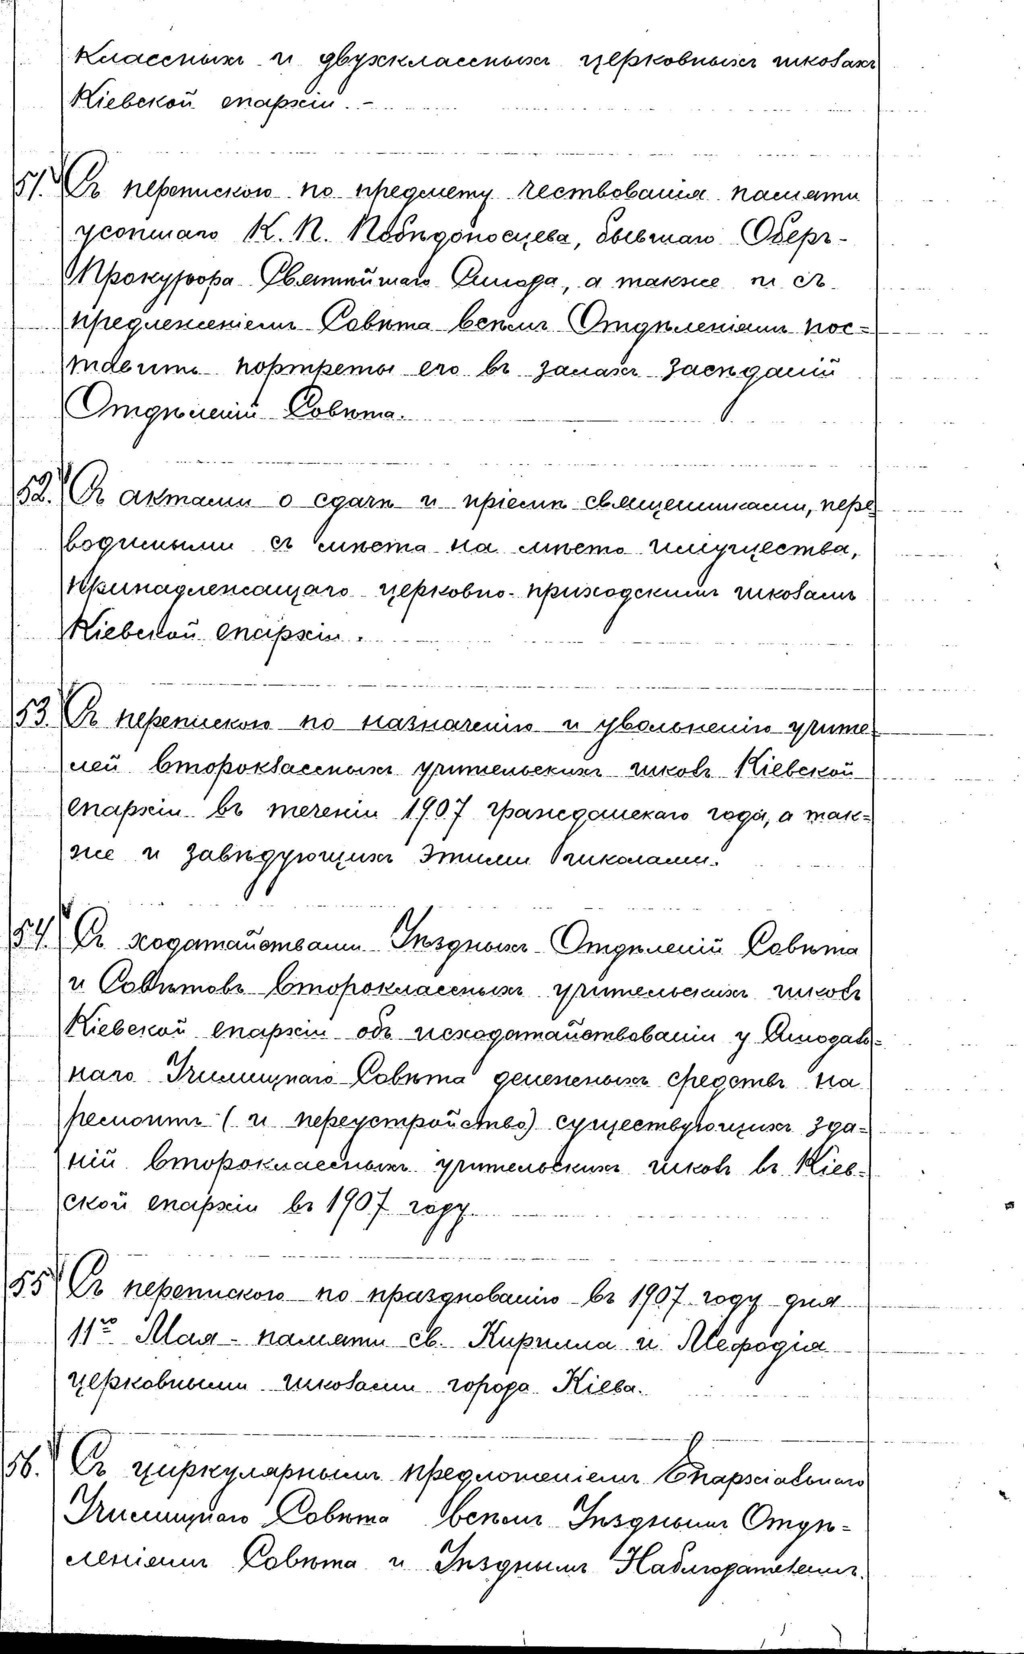 классныхъ и двухклассныхъ церковныхъ школахъ
Кіевской епархіи. –
51. Съ перепискою по предмету чествованія памяти
усопшаго К. П. Побѣдоносцева, бывшаго Оберъ-
Прокурора Святѣйшаго Синода, а также и съ
предложеніемъ Совѣта всѣмъ Отдѣленіямъ пос=
тавить портреты его въ залахъ засѣданій
Отдѣленій Совѣта.
52. Съ актами о сдачѣ и пріемѣ священниками, пере=
водимыми съ мѣста на мѣсто имущества,
принадлежащаго церковно-приходскимъ школамъ
Кіевской епархіи.
53. Съ перепискою по назначенію и увольненію учите=
лей второклассныхъ учительскихъ школъ Кіевской
епархіи въ теченіи 1907 гражданскаго года, а так=
же и завѣдующихъ этими школами.
54. Съ ходатайствами Уѣздныхъ Отдѣленій Совѣта
и Совѣтовъ второклассныхъ учительскихъ школъ
Кіевской епархіи объ исходатайствованіи у Синодаль=
наго Училищнаго Совѣта денежныхъ средствъ на
ремонтъ (и переустройство) существующихъ зда=
ній второклассныхъ учительскихъ школъ въ Кіев=
ской епархіи въ 1907 году.
55 Съ перепискою по празднованію въ 1907 году дня
11го Мая – памяти св. Кирилла и Мефодія
церковными школами города Кіева.
56. Съ циркулярнымъ предложеніемъ Епархіальнаго
Училищнаго Совѣта всѣмъ Уѣзднымъ Отдѣ=
леніямъ Совѣта и Уѣзднымъ Наблюдателямъ